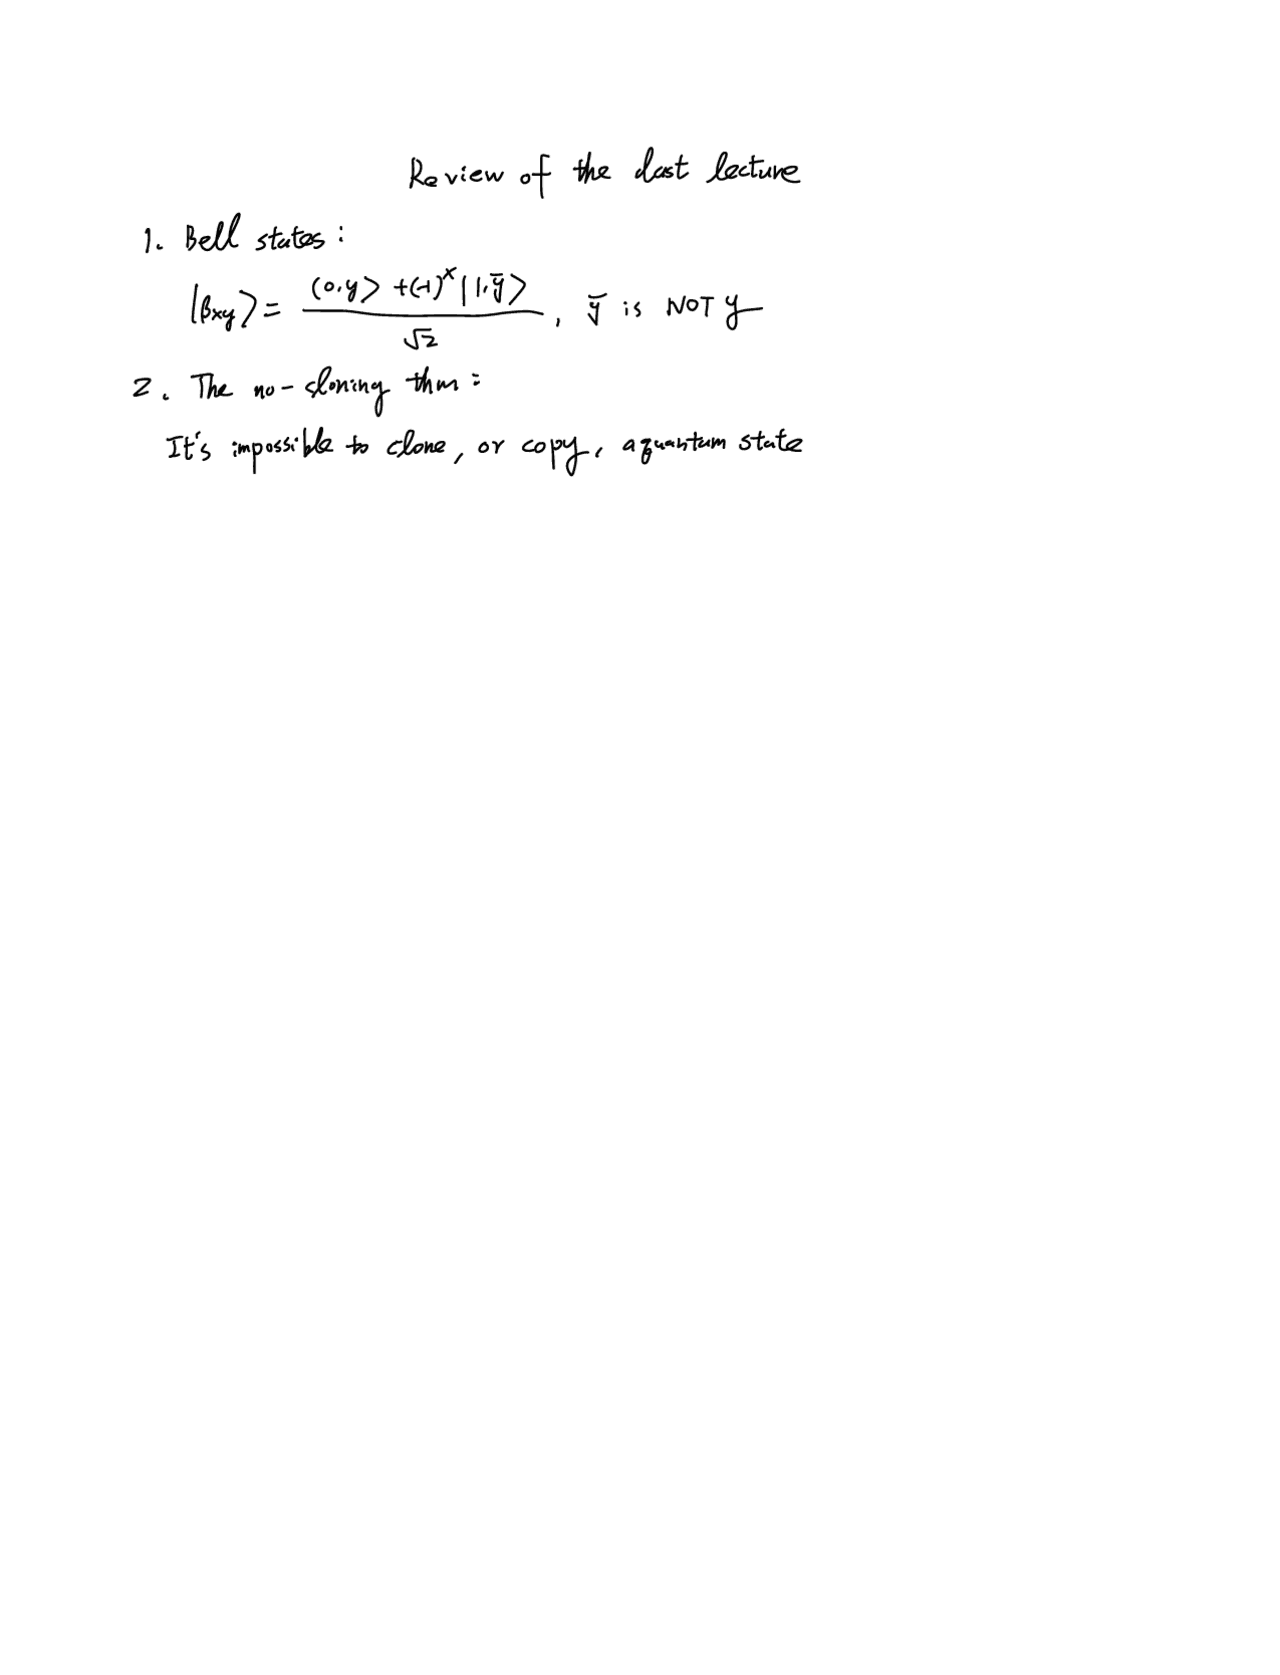 Review of the last lecture
1. Bell states:
|βxy⟩ = (|0,y⟩ + (-1)^x |1,ȳ⟩) / √2, ȳ is NOT y
2. The no-cloning thm:
It's impossible to clone, or copy, a quantum state